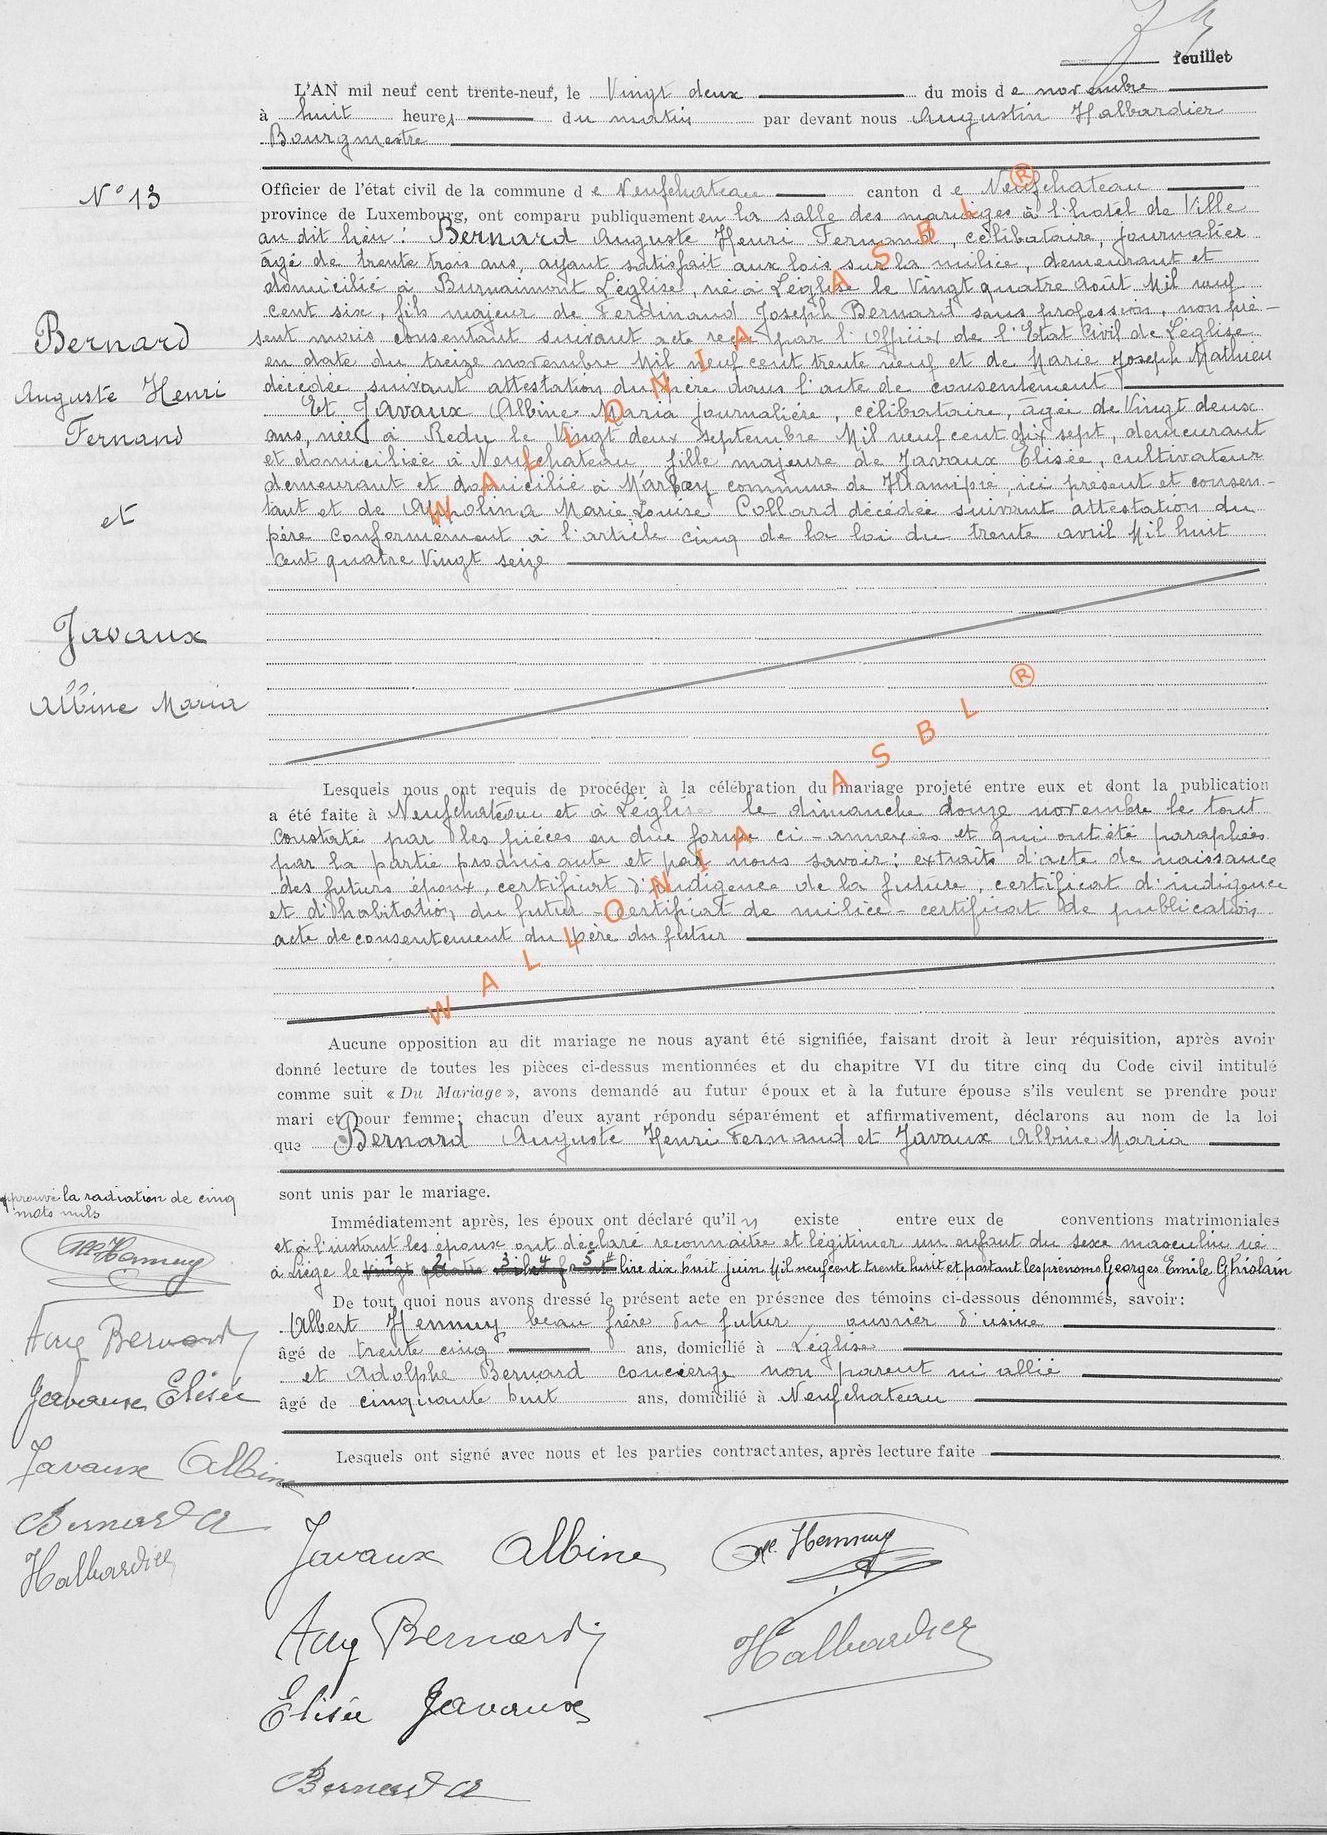 feuillet
L'AN mil neuf cent trente-neuf, le Vingt deux du mois de novembre
à huit heures du matin par devant nous Augustin Halbardier
Bourgmestre
N° 13
Officier de l'état civil de la commune de Neufchateau canton de Neufchateau
province de Luxembourg, ont comparu publiquement en la salle des mariages à l'hotel de Ville
au dit lieu : Bernard Auguste Henri Fernand, célibataire, journalier
âgé de trente trois ans, ayant satisfait aux lois sur la milice, demeurant et
domicilié à Burnaimont Léglise, né à Léglise le Vingt quatre Août Mil neuf
cent six, fils majeur de Ferdinand Joseph Bernard sans profession, non pré-
sent mais consentant suivant acte reçu par l'Officier de l'Etat Civil de Léglise
en date du treize novembre Mil neuf cent trente neuf et de Marie Joseph Mathieu
décédée suivant attestation du père dans l'acte de consentement
Et Javaux Albine Maria journalière, célibataire, âgée de Vingt deux
ans, née à Redu le Vingt deux septembre Mil neuf cent dix sept, demeurant
et domiciliée à Neufchateau fille majeure de Javaux Elisée, cultivateur
demeurant et domicilié à Marbay commune de Hamipré, ici présent et consen-
tant et de Appolina Marie Louise Collard décédée suivant attestation du
père conformément à l'article cinq de la loi du trente avril Mil huit
cent quatre Vingt seize
Bernard
Auguste Henri
Fernand
et
Javaux
Albine Maria
Lesquels nous ont requis de procéder à la célébration du mariage projeté entre eux et dont la publication
a été faite à Neufchateau et à Léglise le dimanche douze novembre le tout
constaté par les pièces en due forme ci-annexées et qui ont été paraphées
par la partie produisante et par nous savoir : extraits d'acte de naissance
des futurs époux, certificat d'indigence de la future, certificat d'indigence
et d'habitation du futur - certificat de milice - certificat de publication
acte de consentement du père du futur
Aucune opposition au dit mariage ne nous ayant été signifiée, faisant droit à leur réquisition, après avoir
donné lecture de toutes les pièces ci-dessus mentionnées et du chapitre VI du titre cinq du Code civil intitulé
comme suit « Du Mariage », avons demandé au futur époux et à la future épouse s'ils veulent se prendre pour
mari et pour femme; chacun d'eux ayant répondu séparément et affirmativement, déclarons au nom de la loi
que Bernard Auguste Henri Fernand et Javaux Albine Maria
sont unis par le mariage.
Immédiatement après, les époux ont déclaré qu'il y existe entre eux de conventions matrimoniales
et à l'instant les époux ont déclaré reconnaître et légitimer un enfant du sexe masculin né
à Liège le lire dix huit juin Mil neuf cent trente huit et portant les prénoms Georges Emile Ghislain
De tout quoi nous avons dressé le présent acte en présence des témoins ci-dessous dénommés, savoir :
Albert Hennuy beau frère du futur, ouvrier d'usine
âgé de trente cinq ans, domicilié à Léglise
et Adolphe Bernard concierge non parent ni allié
âgé de cinquante huit ans, domicilié à Neufchateau
Lesquels ont signé avec nous et les parties contractantes, après lecture faite
Approuvé la radiation de cinq
mots nuls
Hennuy
Aug Bernard
Javaux Elisée
Javaux Albine
Bernard A
Halbardier
Javaux Albine
Hennuy
Aug Bernard
Halbardier
Elisée Javaux
Bernard A
WALLONIA ASBL ®
WALLONIA ASBL ®